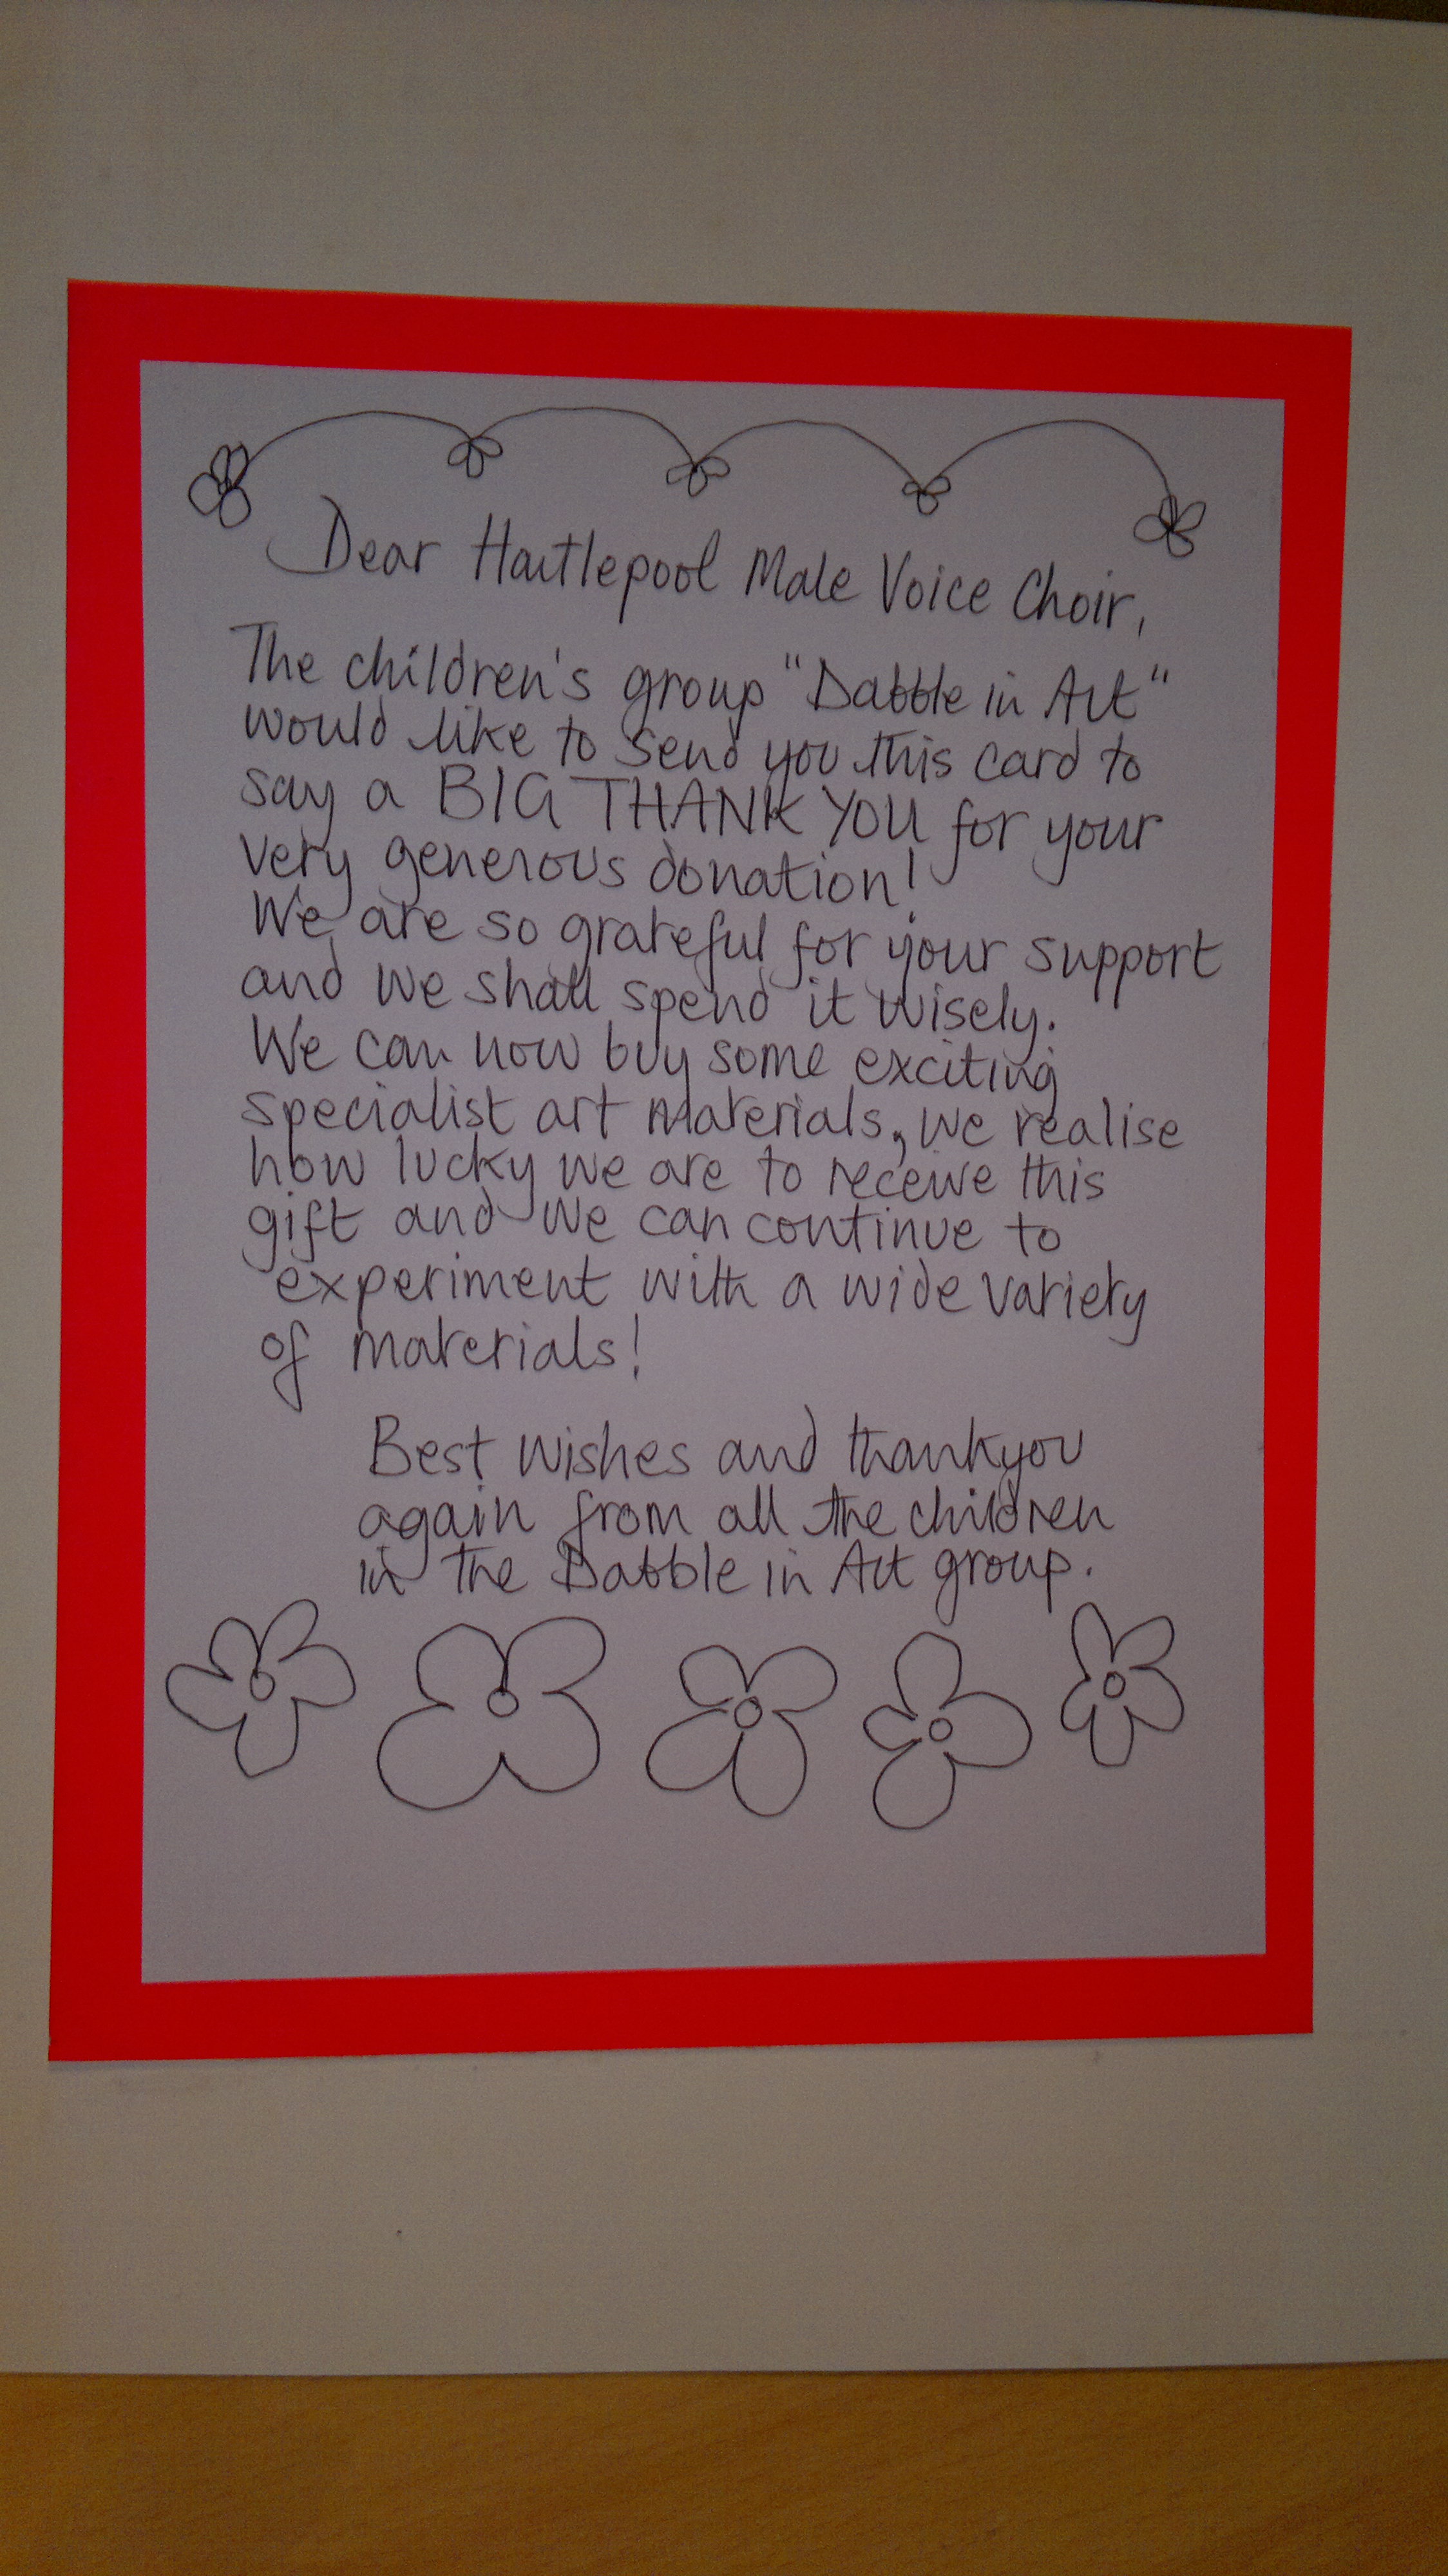 Dear Hartlepool Male Voice Choir,
The children's group "Dabble in Art"
would like to send you this card to
say a BIG THANK YOU for your
very generous donation!
We are so grateful for your support
and we shall spend it wisely.
We can now buy some exciting
specialist art materials, we realise
how lucky we are to receive this
gift and we can continue to
experiment with a wide variety
of materials!
Best wishes and thankyou
again from all the children
in the Dabble in Art group.